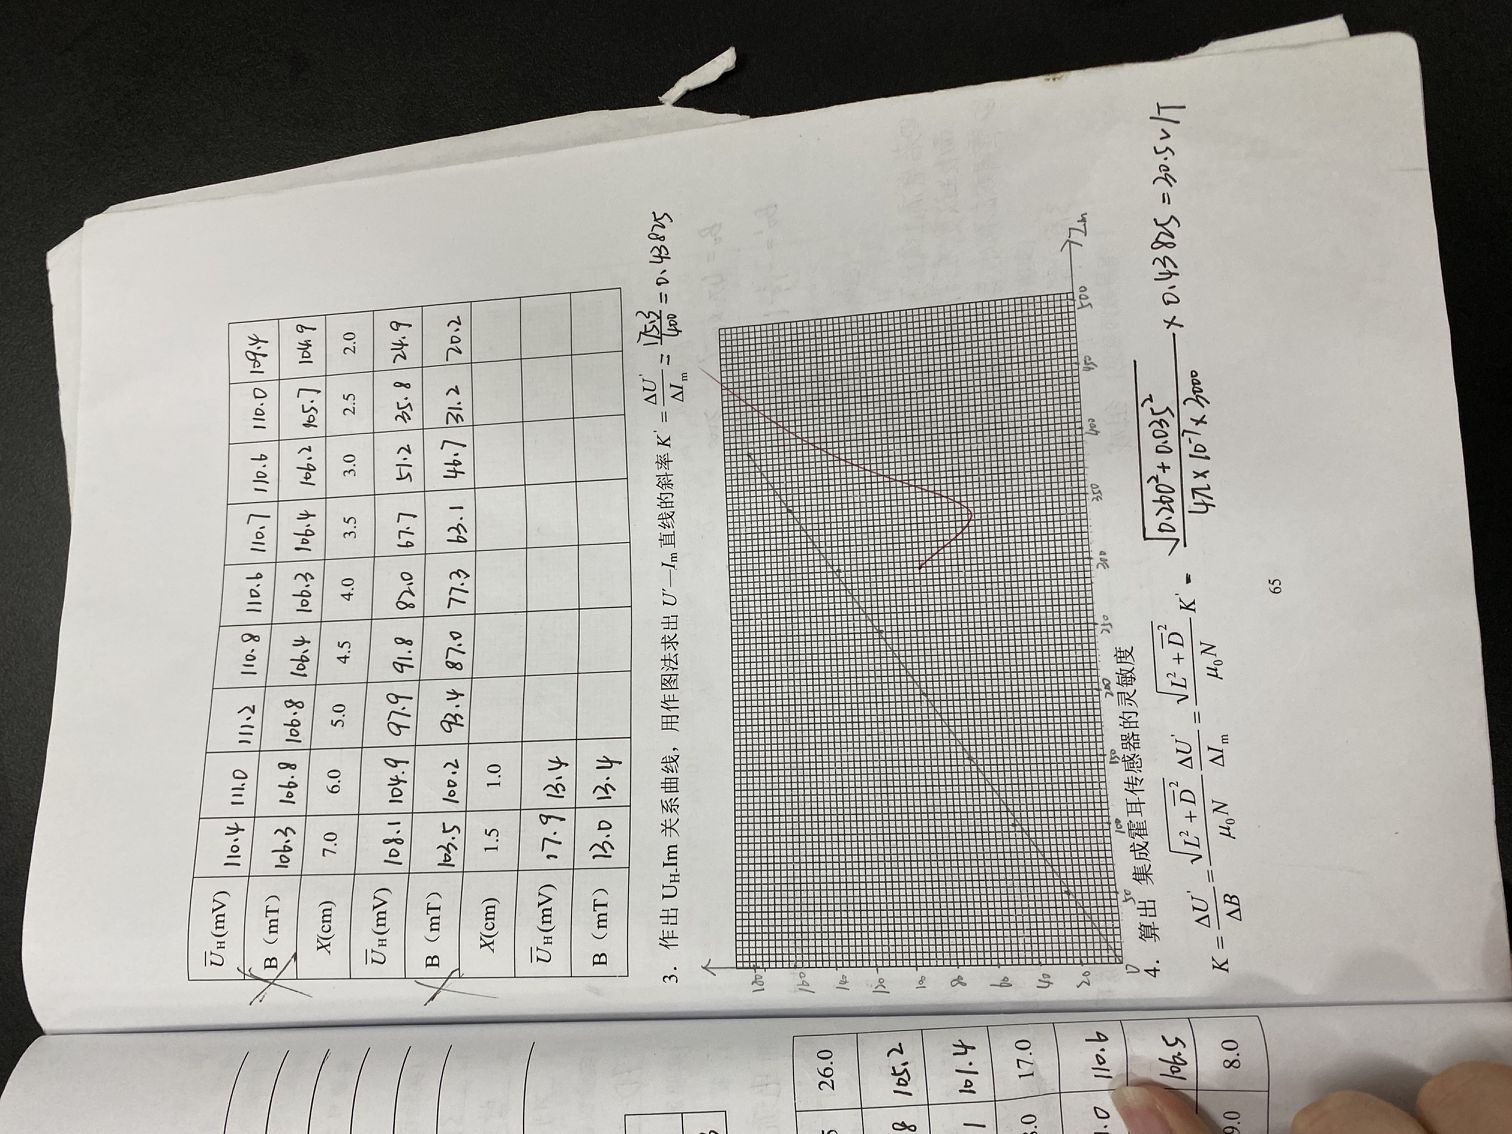 5 26.0
8 105.2
1 101.4
8.0 17.0
1.0 110.6
106.5
9.0 8.0
U̅H(mV) 110.4 111.0 111.2 110.8 110.6 110.7 110.6 110.0 109.4
B（mT） 106.3 106.8 106.8 106.4 106.3 106.4 106.2 105.7 104.9
X(cm) 7.0 6.0 5.0 4.5 4.0 3.5 3.0 2.5 2.0
U̅H(mV) 108.1 104.9 97.9 91.8 82.0 67.7 51.2 35.8 24.9
B（mT） 103.5 100.2 93.4 87.0 77.3 63.1 46.7 31.2 20.2
X(cm) 1.5 1.0
U̅H(mV) 17.9 13.4
B（mT） 13.0 13.4
3. 作出 UH-Im 关系曲线，用作图法求出 U′—Im 直线的斜率 K′ = ΔU′/ΔIm = 175.3/400 = 0.43825
180
160
140
120
100
80
60
40
20
0 50 100 150 200 250 300 350 400 450 500 Im
4. 算出 集成霍耳传感器的灵敏度
K = ΔU′/ΔB = √(L² + D̅²)/μ₀N ΔU′/ΔIm = √(L² + D̅²)/μ₀N K′ = √(0.260² + 0.035²)/(4π × 10⁻⁷ × 3000) × 0.43825 = 30.5 V/T
65